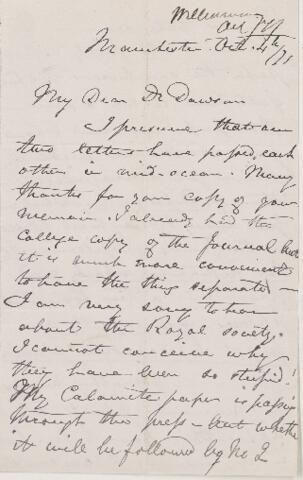 Williamson
Oct
Manchester Oct. 4th /71
My Dear Dr Dawson
I presume that our
two letters have passed each
other in mid-ocean. Many
thanks for your copy of your
Memoir. I already had the
College copy of the Journal but
it is much more convenient
to have the thing separate -
I am very sorry to hear
about the Royal Society.
I cannot conceive why
they have been so stupid!
My Calamite paper is passing
through the press - but whether
it will be followed by No 2